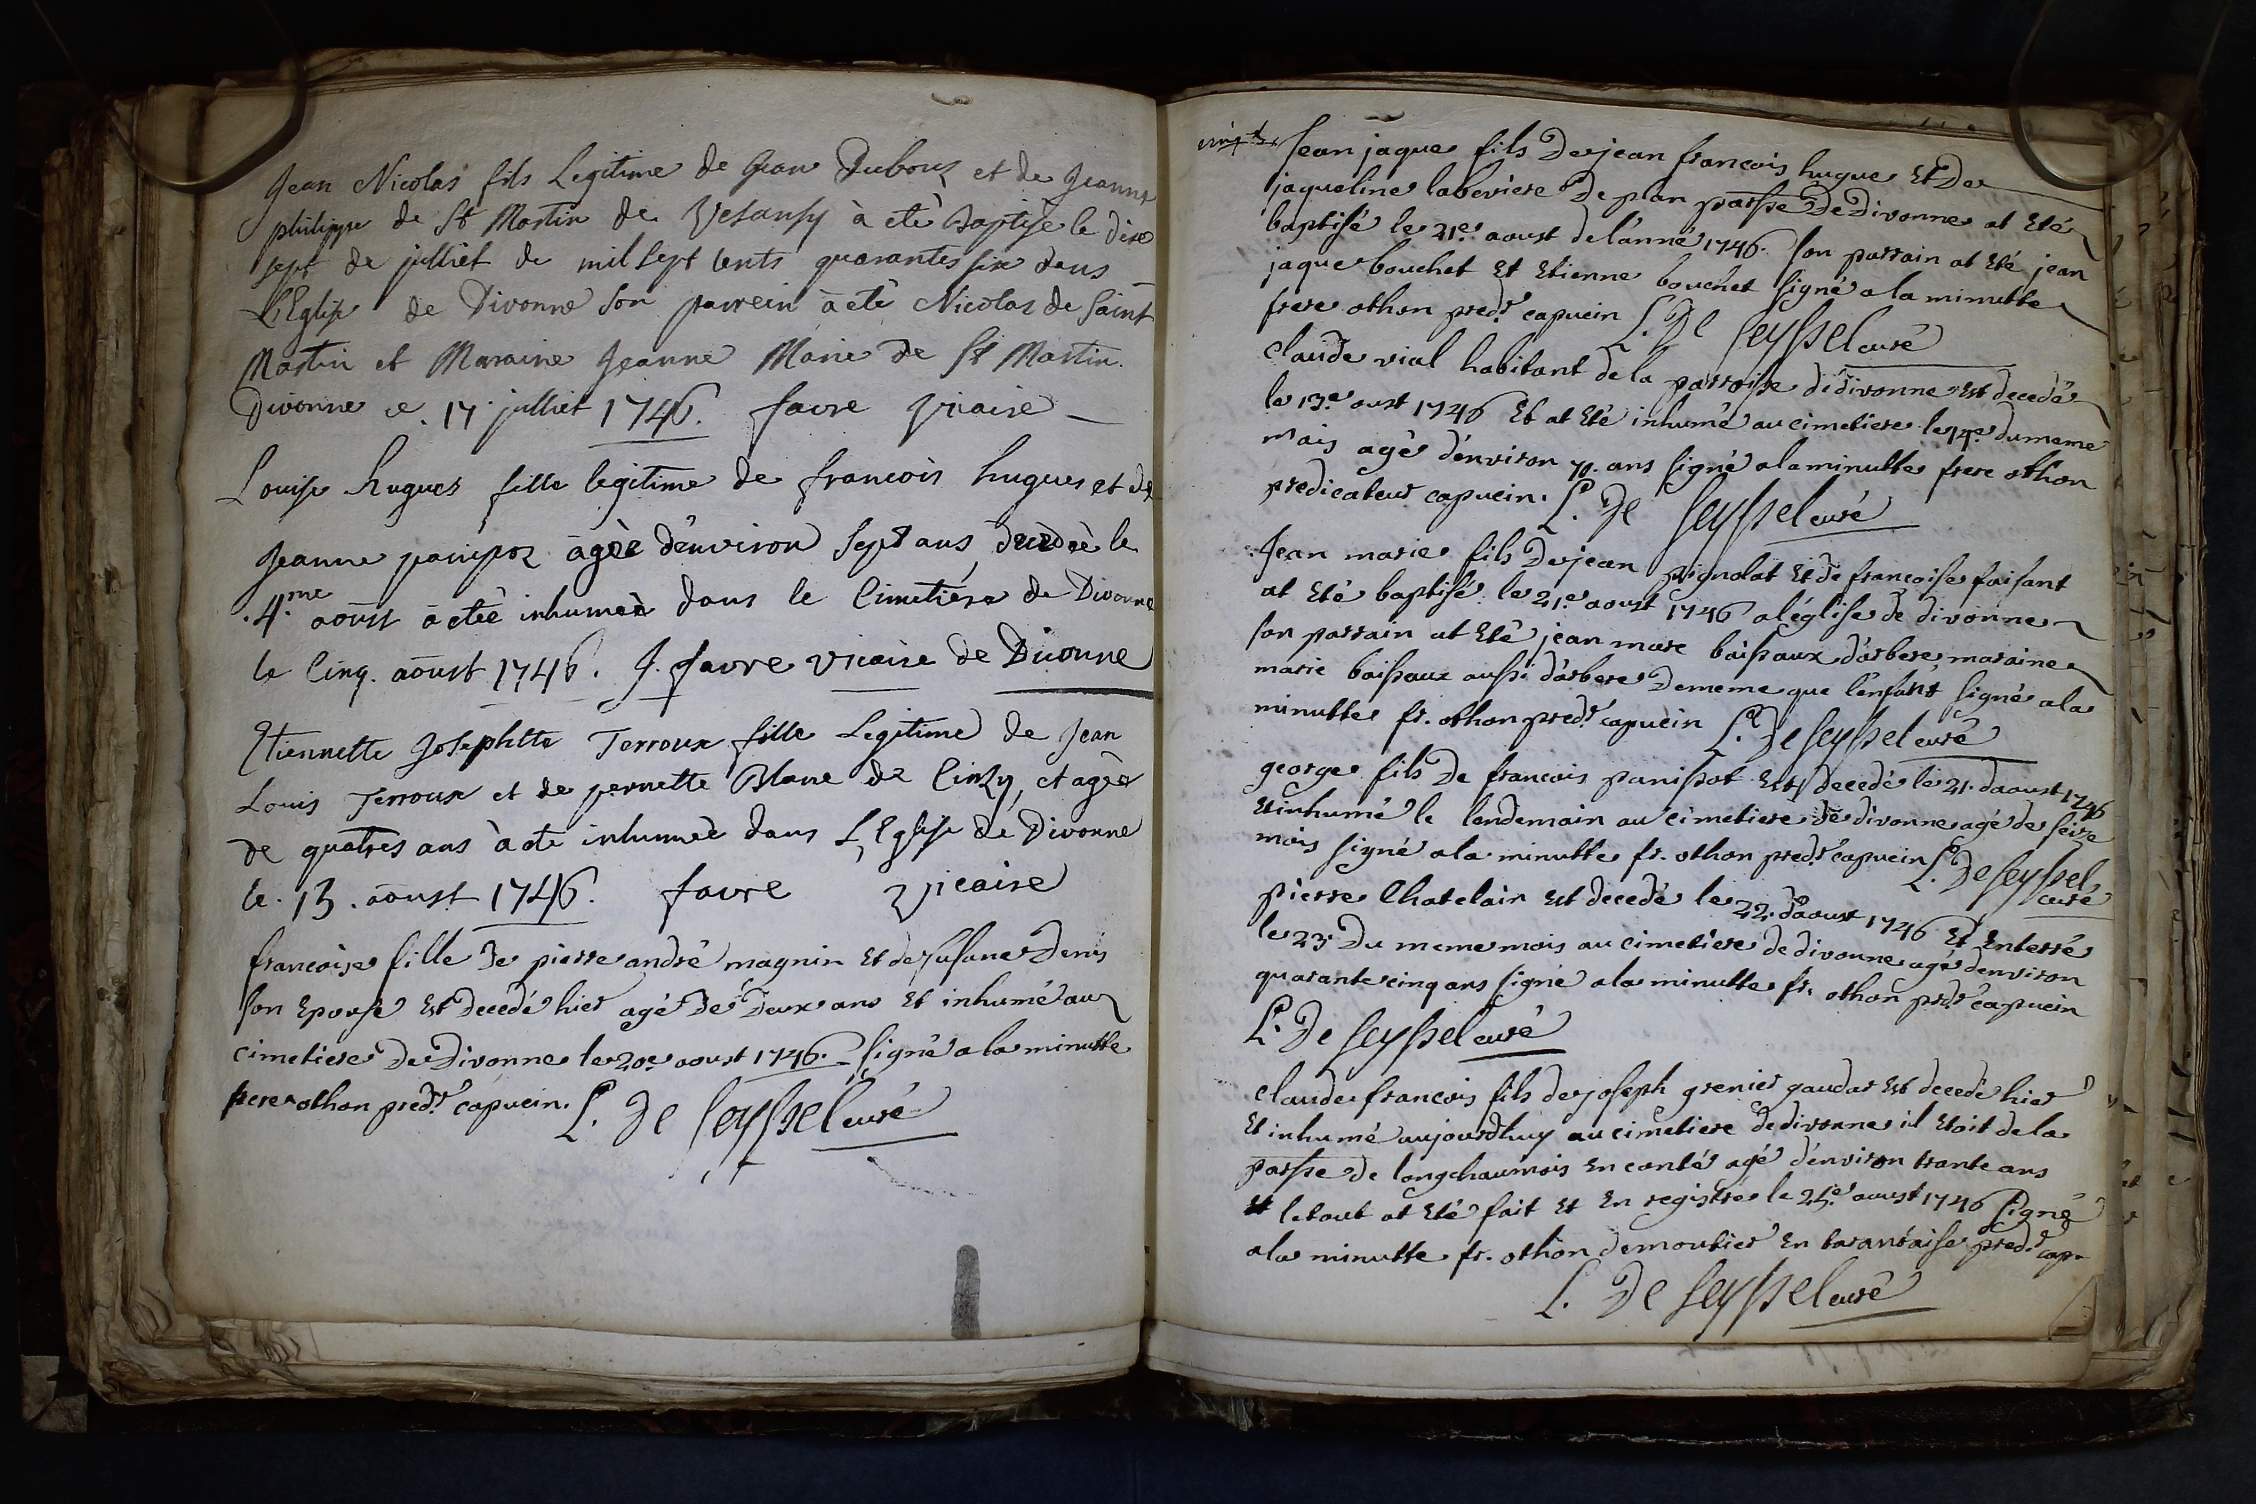 Jean Nicolas fils Legitime de Jean Dubouz et de Jeanne
philippe de St Martin de Vesansy à eté Baptisé le dixe
sept de julliet de mil sept cents quarantes six dans
L'Eglise de Divonne son parrein à eté Nicolas de Saint
Martin et Maraine Jeanne Marie de St Martin.
Divonne ce. 17. julliet 1746. favre Vicaire
Louise hugues fille legitime de francois hugues et de
Jeanne panipoz agèe d'environ sept ans, decedèe le
.4.me aoust à etèe inhumeè dans le Cimetiere de Divonne
le Cinq. aoust 1746. J. favre vicaire de Divonne
Etiennette Josephtte Terroux fille Legitime de Jean
Louis Terroux et de pernette Blanc de Cinzy, et agèe
de quatres ans à ete inhumeè dans L'Eglise de Divonne
le. 13. aoust 1746. favre Vicaire
francoise fille de pierre andré magnin et de susane Denis
son Epouse est decedé hier agé de deux ans et inhumé au
cimetiere de Divonne le 20e aoust 1746. signé a la minutte
frere othon predr capucin. L. De Seyssel curé
Jean jaque fils de jean francois hugue et de
jaqueline laberiere de plan parsse de Divonne at eté
baptisé le 21e. aoust de l'anné 1746. son parrain at eté jean
jaque bouchet et Etienne bouchet signé a la minutte
frere othon predr capucin L. De Seyssel curé
claude vial habitant de la parroisse dédivonne est decedé
le 13e oust 1746 Et at eté inhumé au cimetiere le 14e du meme
mois agé d'environ 70. ans signé a la minutte frere othon
predicateur capucin. L. De Seyssel curé
Jean marie fils de jean pignolat et de françoise faisant
at eté baptisé le 21e. aoust 1746 a l'église de divonne
son parrain at eté jean marc baissaux d'arbere, maraine
marie baissaux aussi d'arbere de meme que l'enfant signé a la
minutte fr. othon predr capucin L. De Seyssel curé
george fils de francois panissot est decedé le 21. d'aoust 1746
et inhumé le lendemain au cimetiere de divonne agé de seize
mois signé a la minutte fr. othon predr capucin L. De Seyssel
curé
pierre Chatelain est decedé le 22. d'aoust 1746 Et Enterré
le 23. du meme mois au cimetiere de divonne agé denviron
quarante cinq ans signé a la minutte fr. othon predr capucin
L. De Seyssel curé
claude francois fils de joseph grenier gaudar est decedé hier
Et inhumé aujourdhuy au cimetiere de divonne il etoit de la
parsse de longchaumois en conté agé d'environ trante ans
et le tout at eté fait et en registré le 25e. aoust 1746 signé
a la minutte fr. othon de moutier en tarantaise predr cap.
L. De Seyssel curé